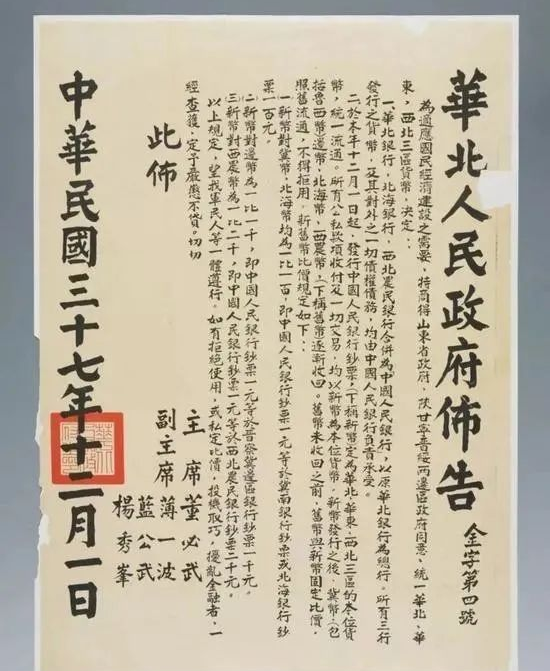 華北人民政府佈告
金字第四號
為適應國民經濟建設之需要，特商得山東省政府，陝甘寧晉綏兩邊區政府同意，統一華北、華
東、西北三區貨幣，決定：
一、華北銀行，北海銀行，西北農民銀行合併為中國人民銀行，以原華北銀行為總行。所有三行
發行之貨幣，及其對外之一切債權債務，均由中國人民銀行負責承受。
二、於本年十二月一日起，發行中國人民銀行鈔票，（下稱新幣）定為華北、華東、西北三區的本位貨
幣，統一流通。所有公私款項收付及一切交易，均以新幣為本位貨幣。新幣發行之後，冀幣，（包
括魯西幣）邊幣，北海幣，西農幣，（下稱舊幣）逐漸收回。舊幣未收回之前，舊幣與新幣固定比價，
照舊流通，不得拒用。新舊幣比價規定如下：
㈠新幣對冀幣、北海幣均為一比一百，即中國人民銀行鈔票一元等於冀南銀行鈔票或北海銀行鈔
票一百元。
㈡新幣對邊幣為一比一千，即中國人民銀行鈔票一元等於晉察冀邊區銀行鈔票一千元。
㈢新幣對西農幣為一比二千，即中國人民銀行鈔票一元等於西北農民銀行鈔票二千元。
以上規定，望我軍民人等一體遵行。如有拒絕使用，或私定比價，投機取巧，擾亂金融者，一
經查獲，定予嚴懲不貸。切切
此佈
主席 董必武
副主席 薄一波
藍公武
楊秀峯
中華民國三十七年十二月一日